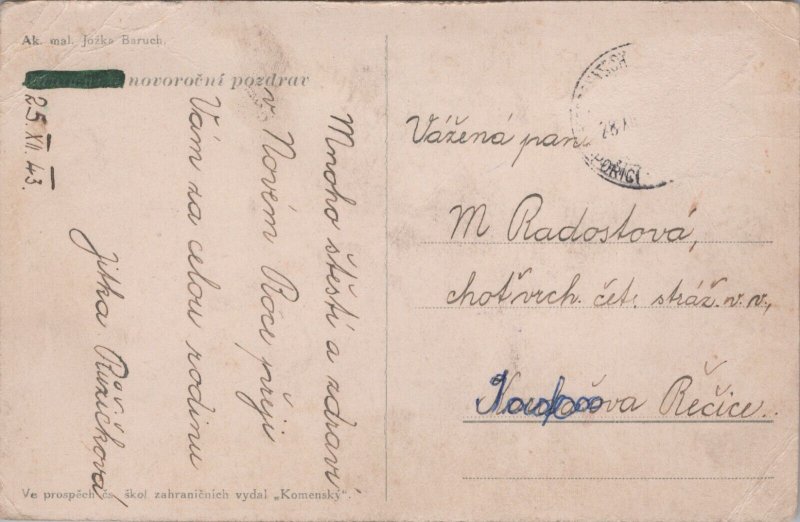 Ak. mal. Jožka Baruch.
novoroční pozdrav
25 XII. 43.
Mnoho štěstí a zdraví
v Novém Roce přeji
Vám za celou rodinu
Jitka Růžičková
Ve prospěch čs. škol zahraničních vydal „Komenský".
28 XII
POŘÍČÍ
Vážená paní
M Radostová,
choť vrch. čet. stráž. v. v.,
va Řečice.